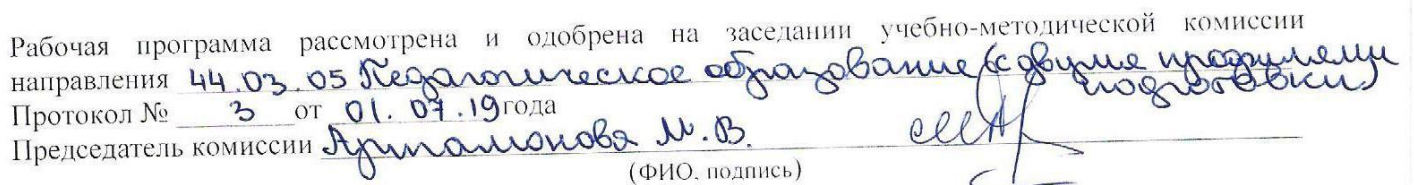 Рабочая программа рассмотрена и одобрена на заседании учебно-методической комиссии
направления 44.03.05 Педагогическое образование (с двумя профилями
подготовки)
Протокол № 3 от 01.07.19 года
Председатель комиссии Артамонова М.В.
(ФИО, подпись)